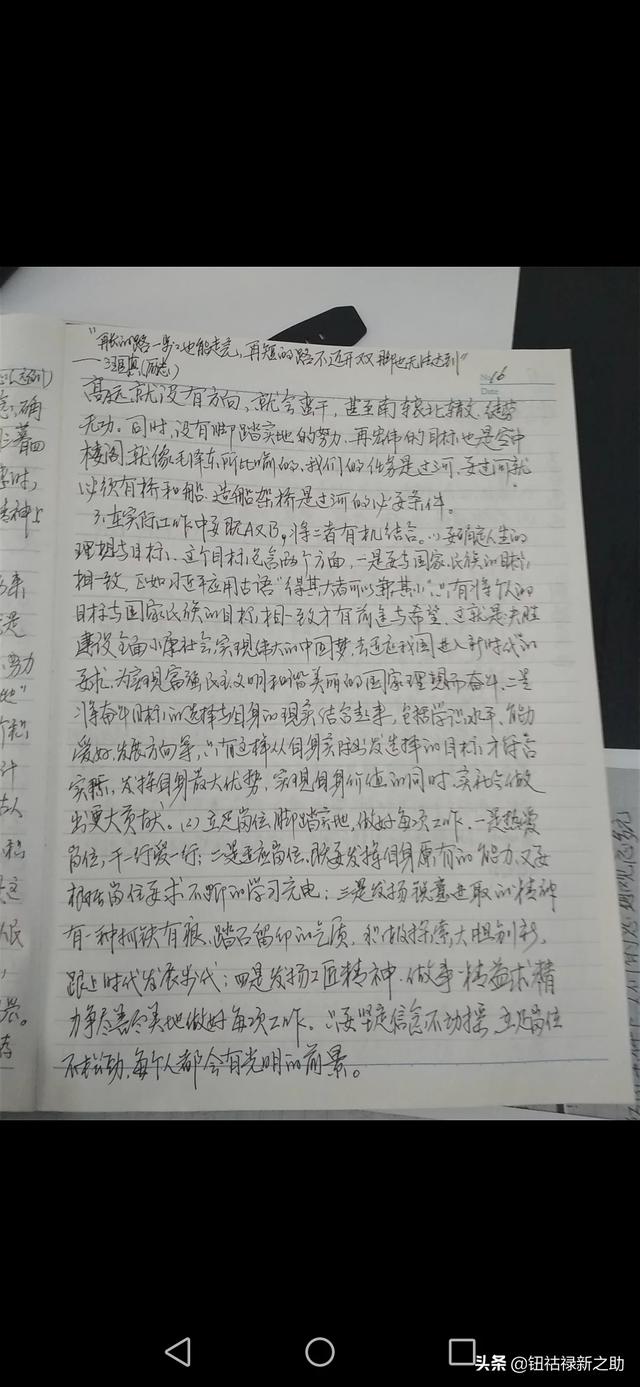 "再长的路一步步也能走完,再短的路不迈开双脚也无法达到"
——汪国真(励志)
No 16
Date
高远就没有方向,就会蛮干,甚至南辕北辙,徒劳
无功。同时,没有脚踏实地的努力,再宏伟的目标也是空中
楼阁,就像毛泽东所比喻的,我们的任务是过河,要过河就
必须有桥和船,造船架桥是过河的必要条件。
3.在实际工作中要既A又B,将二者有机结合。(1)要确定人生的
理想与目标、这个目标包含两个方面,一是要与国家、民族的目标
相一致,正如习近平应用古语"得其大者可以兼其小",只有将个人的
目标与国家民族的目标,相一致才有前途与希望,这就是决胜
建设全面小康社会,实现伟大的中国梦,去适应我国进入新时代的
要求,为实现富强民主文明和谐美丽的国家理想而奋斗,二是
将奋斗目标的选择与自身的现实结合起来,包括学识水平、能力
爱好、发展方向等,只有这样从自身实际出发选择的目标,才符合
实际,发挥自身最大优势,实现自身价值的同时,实社会做
出更大贡献。(2)立足岗位,脚踏实地,做好每项工作,一是热爱
岗位,干一行爱一行;二是适应岗位,既要发挥自身原有的能力,又要
根据岗位要求不断的学习充电;三是发扬锐意进取的精神
有一种抓铁有痕、踏石留印的气质,积极探索,大胆创新,
跟上时代发展步伐;四是发扬工匠精神,做事精益求精
力争尽善尽美地做好每项工作。只要坚定信念不动摇,立足岗位
不松劲,每个人都会有光明的前景。
头条 @钮祜禄新之助